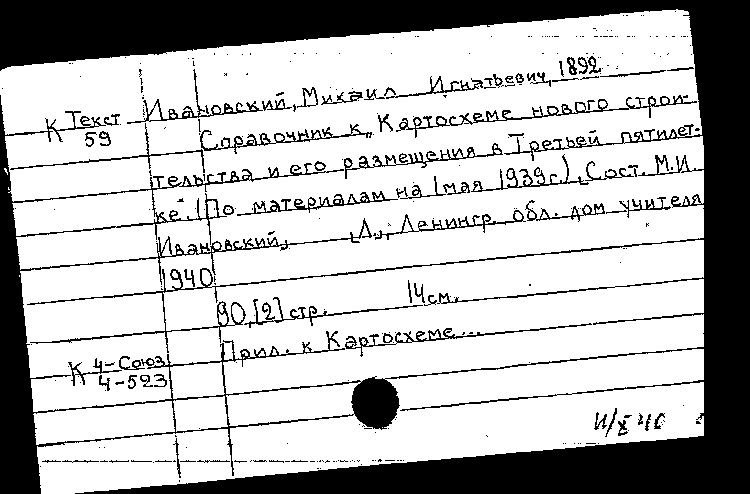 Ивановский, Михаил Игнатьевич, 1892
К Текст 59
Справочник к „Картосхеме нового строи-
тельства и его размещения в Третьей пятилет-
ке". (По материалам на 1 мая 1939 г.) [Сост. М.И.
Ивановский] [Л.], Ленингр. обл. дом учителя
1940
90, [2] стр. 14 см.
Прил. к Картосхеме...
К 4-Союз 4-523